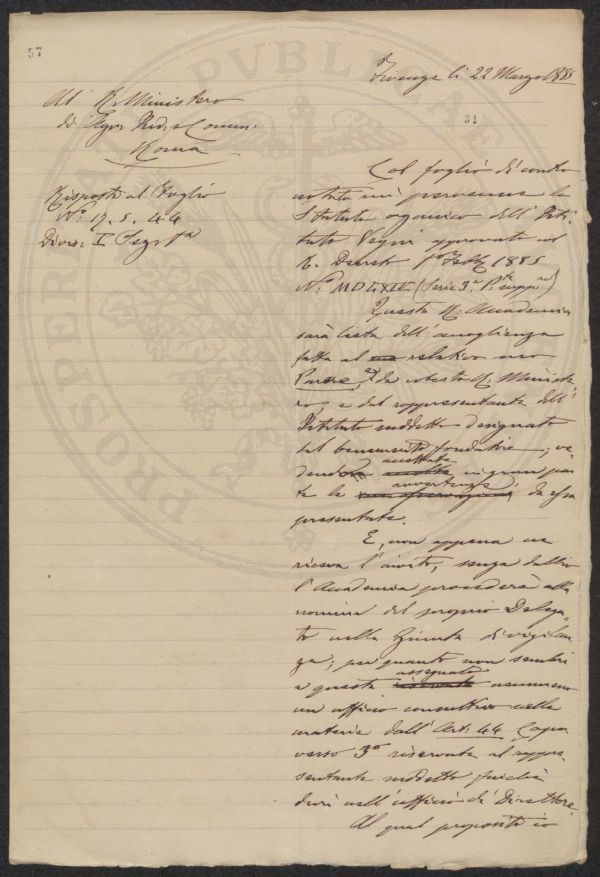 57
Firenze li 22 Marzo 1885
31
Al R. Ministero
di Agri. Ind. e Comm.
Roma
Risposta al Foglio
N.º 17. 5. 44
Divis. I Segr.
Col foglio di contro
notato mi pervenne lo
Statuto organico dell' Isti-
tuto Vegni approvato col
R. Decreto 1º Febb. 1885
N.º MDLXIV (Serie 3ª P.te supp.)
Questa R. Accademia
sarà lieta dell' accoglienza
fatta al relativo suo
Parere, e da codesto R. Ministe-
ro, e dal rappresentante dell'
Istituto suddetto designato
dal benemerito fondatore; ve-
dendo accettate in gran par-
te le avvertenze da essa
presentate.
E, non appena ne
riceva l' invito, senza dubbio
l' Accademia procederà alla
nomina del proprio Delega-
to nella Giunta di vigilan-
za; per quanto non sembri
a questa assegnato nemmeno
un ufficio consultivo nella
materia dall' Art. 44 Capo-
verso 3º riservata al rappre-
sentante suddetto finchè
duri nell' ufficio di Direttore.
Al qual proposito io
PROSPERITATI PUBLICAE